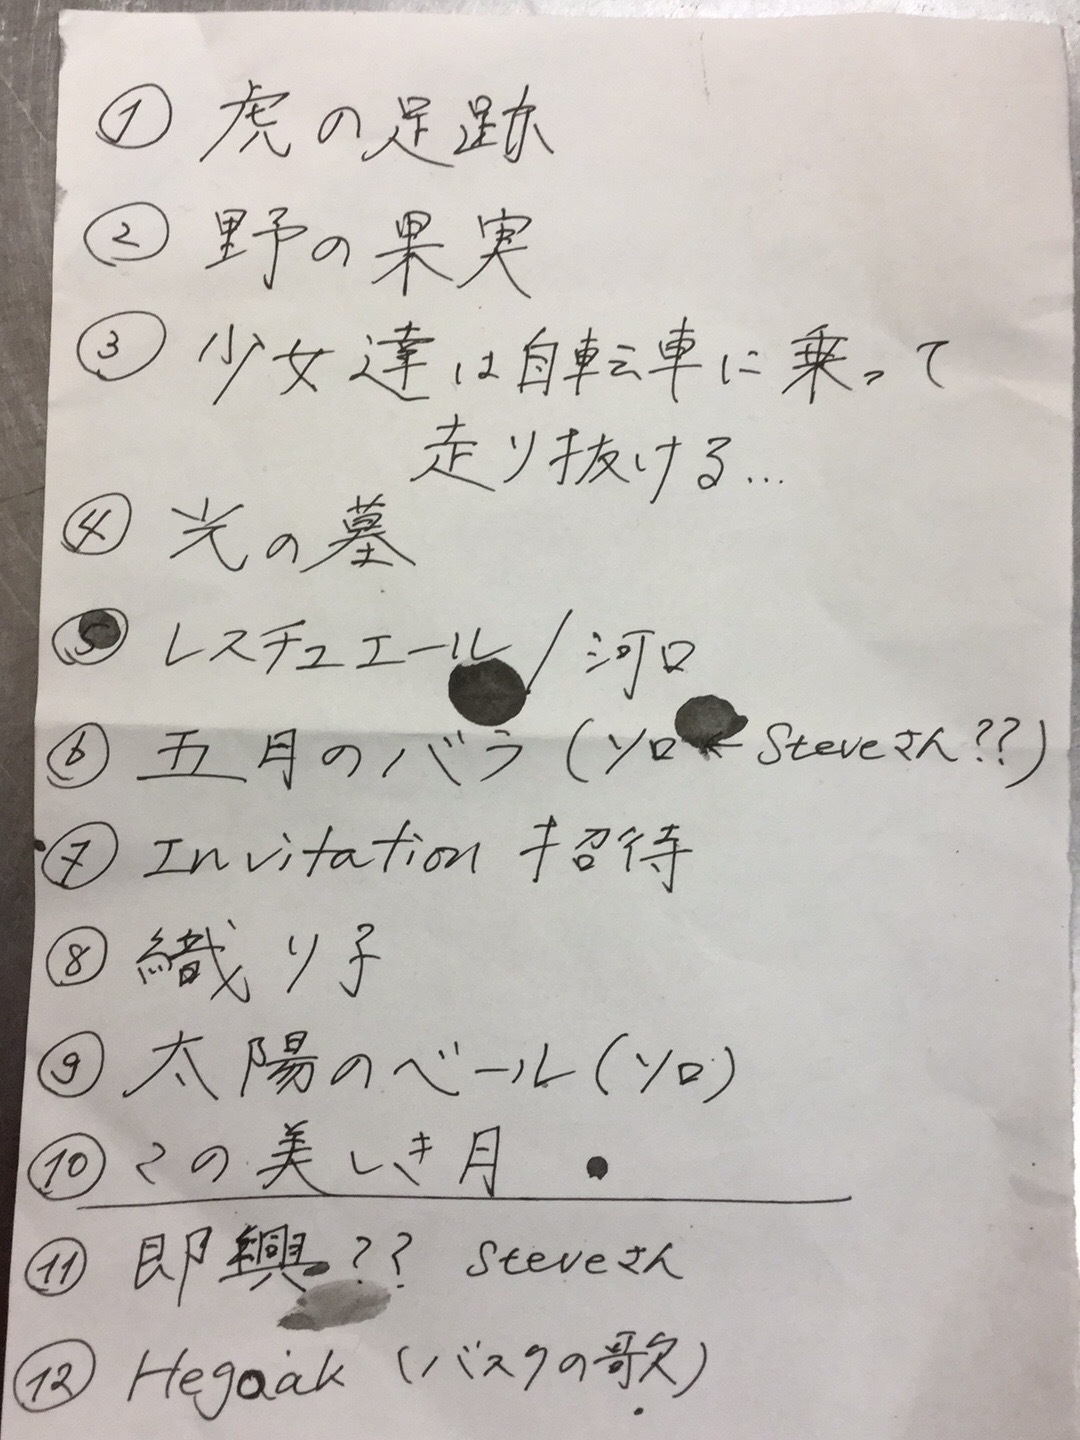 ① 虎の足跡
② 野の果実
③ 少女達は自転車に乗って
走り抜ける...
④ 光の墓
⑤ レスチュエール/河口
⑥ 五月のバラ(ソロ ← Steveさん??)
⑦ Invitation 招待
⑧ 織り子
⑨ 太陽のベール(ソロ)
⑩ この美しき月
⑪ 即興?? Steveさん
⑫ Hegoak (バスクの歌)